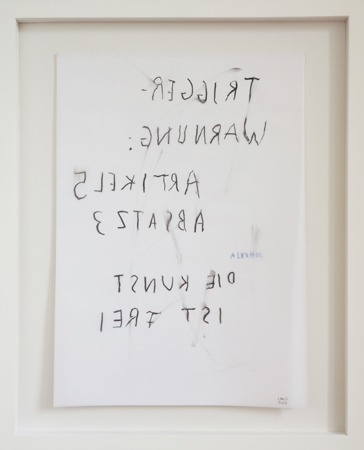 TRIGGER-
WARNUNG:
ARTIKEL 5
ABSATZ 3
DIE KUNST
IST FREI